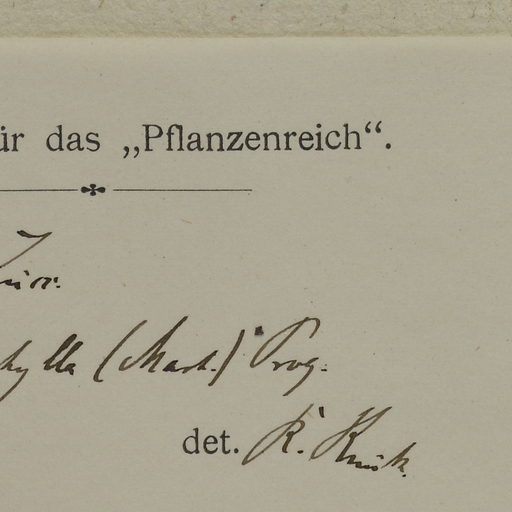 ür das „Pflanzenreich“.
hylla (Mart.) Prog.
det. R. Knuth.